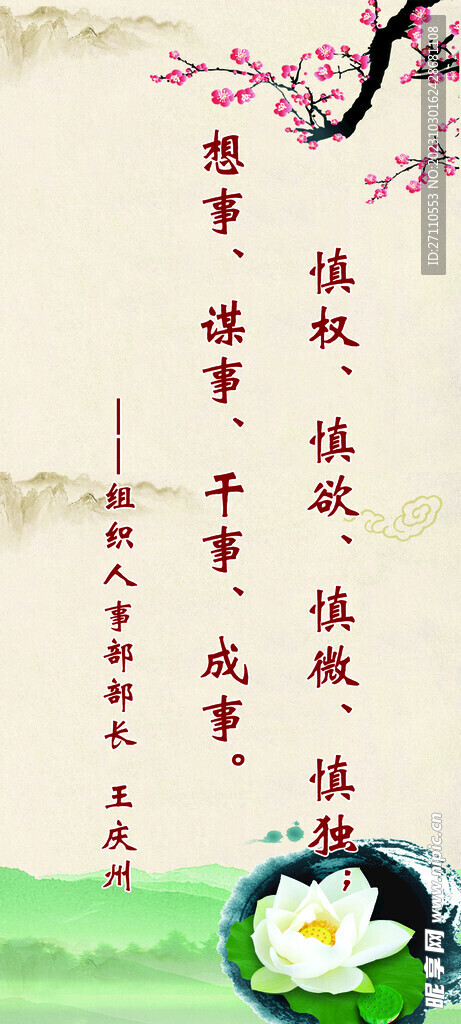 慎权、慎欲、慎微、慎独；
想事、谋事、干事、成事。
——组织人事部部长 王庆州
ID:27110553 NO:20231030162428681108
昵享网 www.nipic.cn